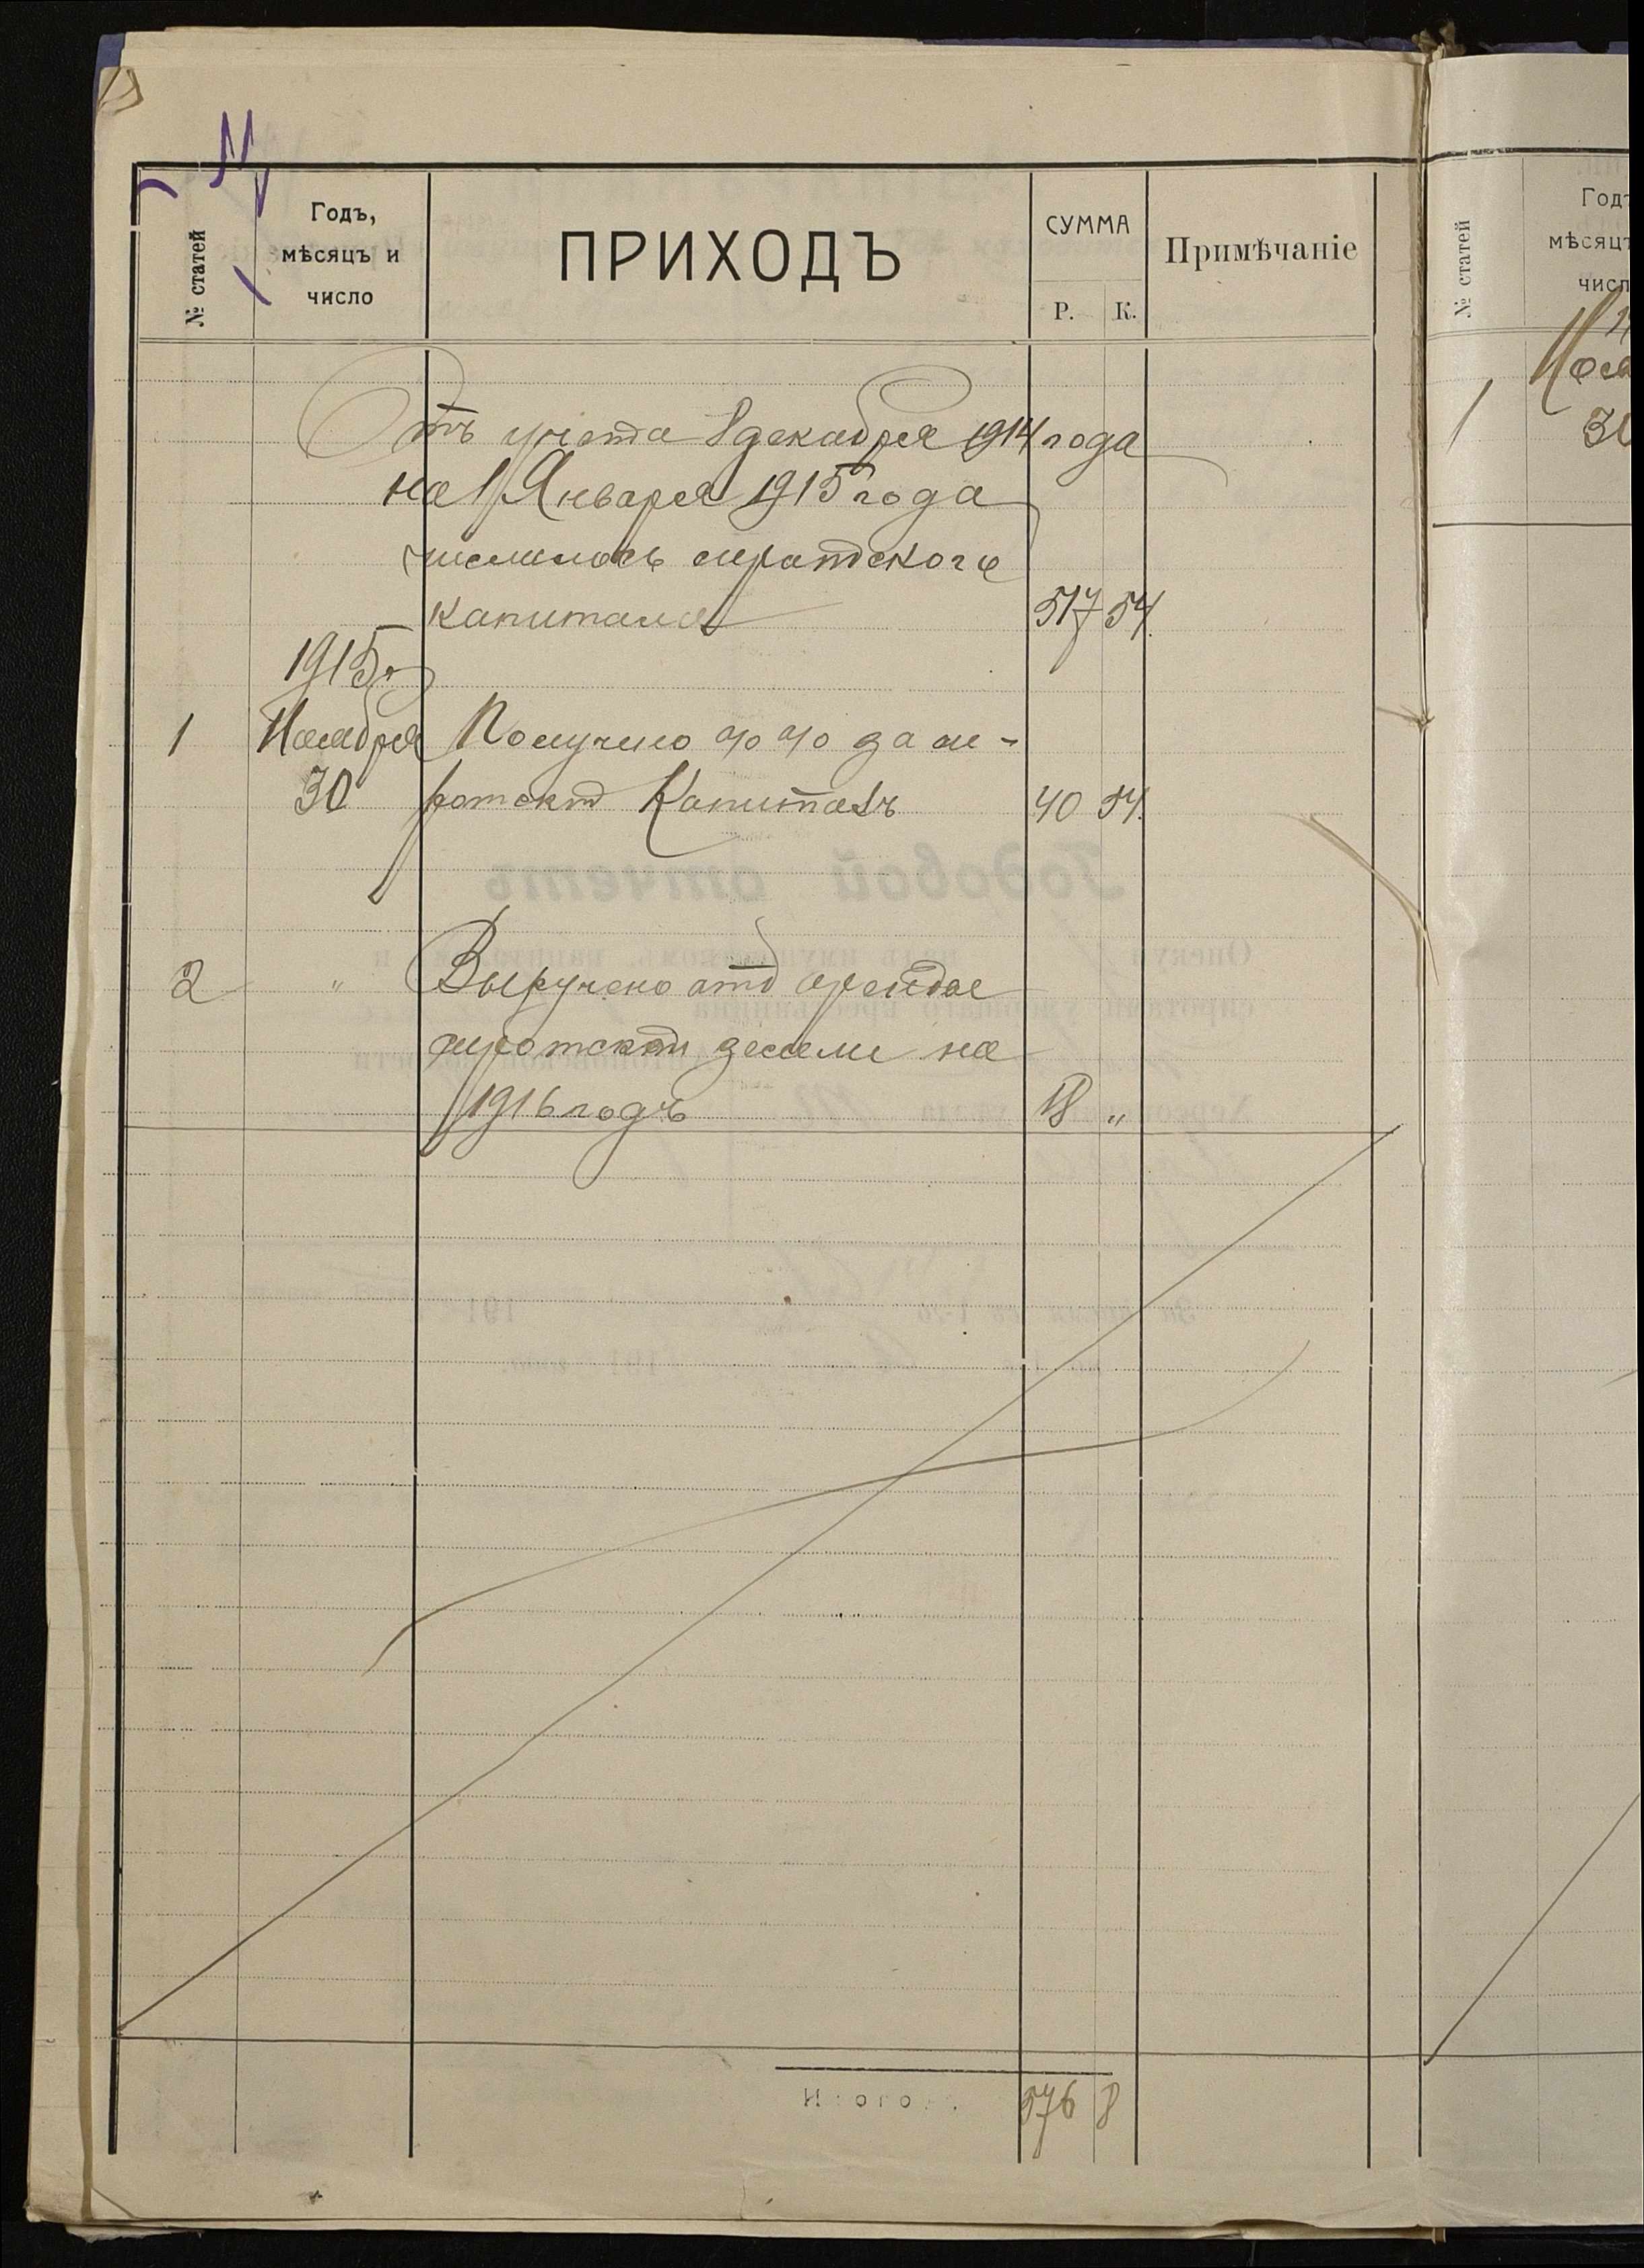 № статей
Годъ,
мѣсяцъ и
число
ПРИХОДЪ
СУММА
Р. К.
Примѣчаніе
Отъ учета 8 декабря 1914 года
на 1 Января 1915 года
числилось сиротского
капитала 517 54
1915 г
1 Ноября Получено % % за си-
30 ротскій Капиталъ 40 54
2 " Выручено отъ аренды
сиротской земли на
1916 годъ 18 "
Итого 576 8
№ статей
Годъ
мѣсяцъ
число
1
30